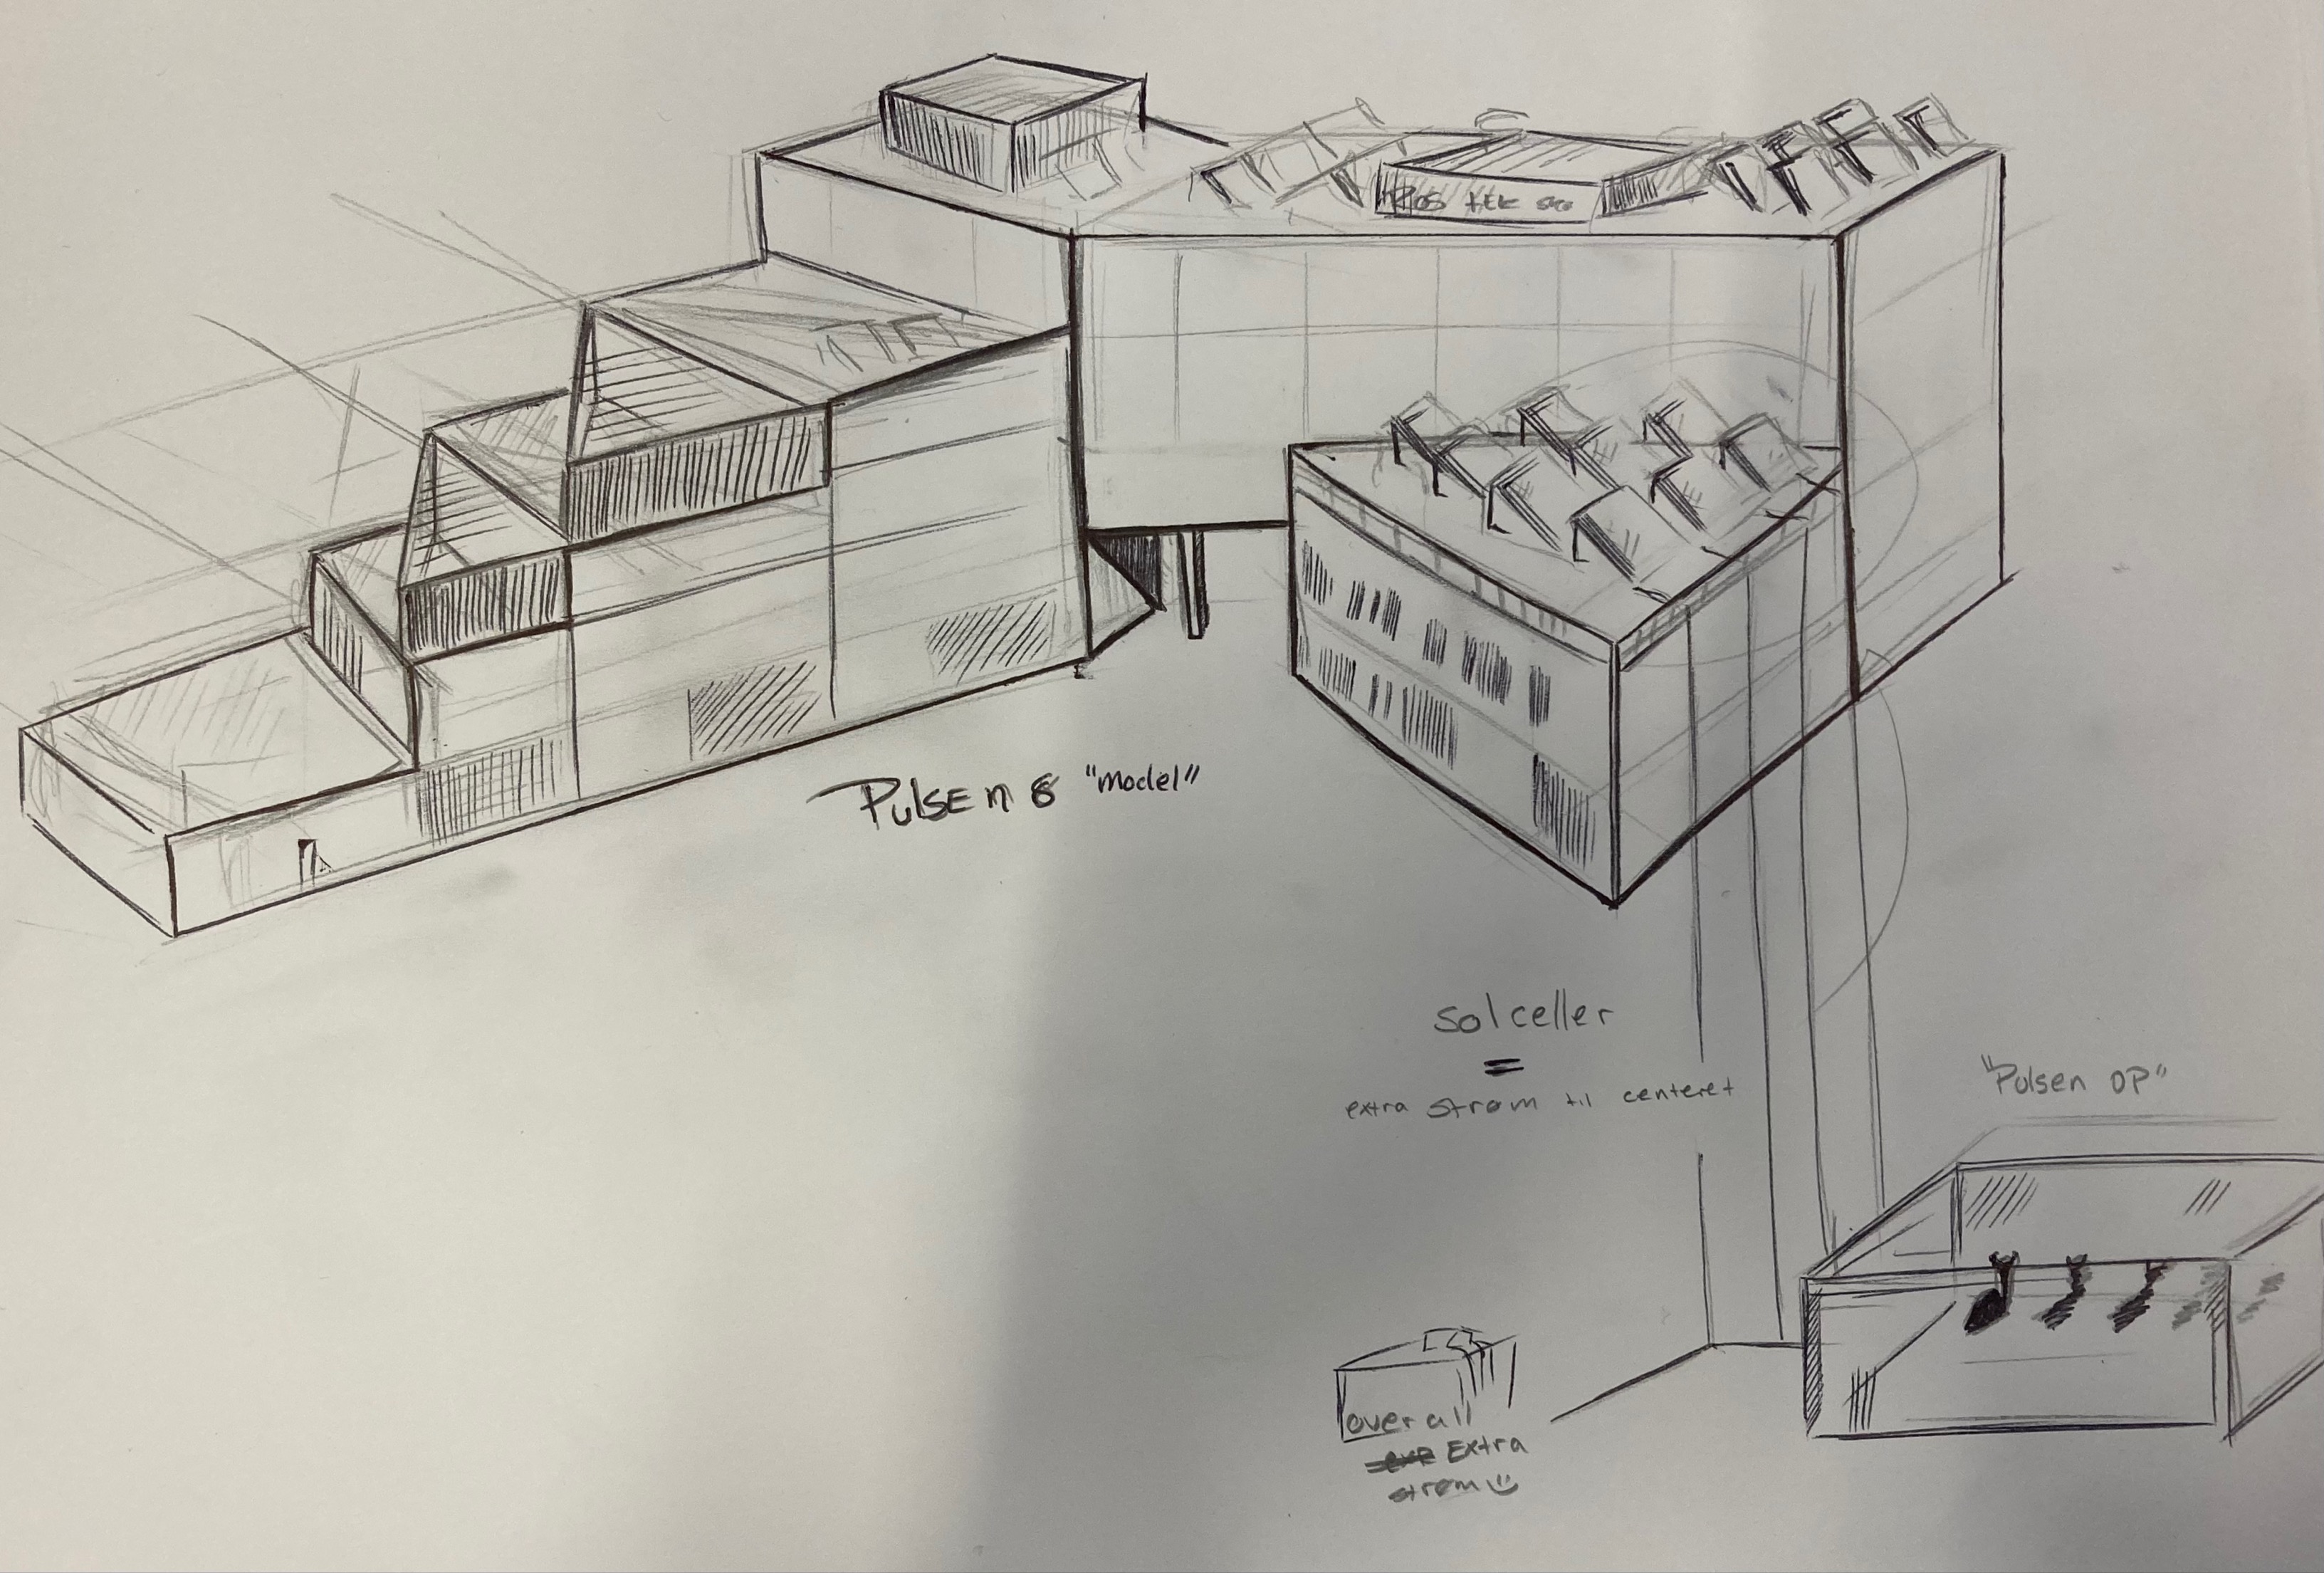 Pulsen 8 "model"
solceller
=
extra strøm til centeret
"Pulsen OP"
over all
Extra
strøm